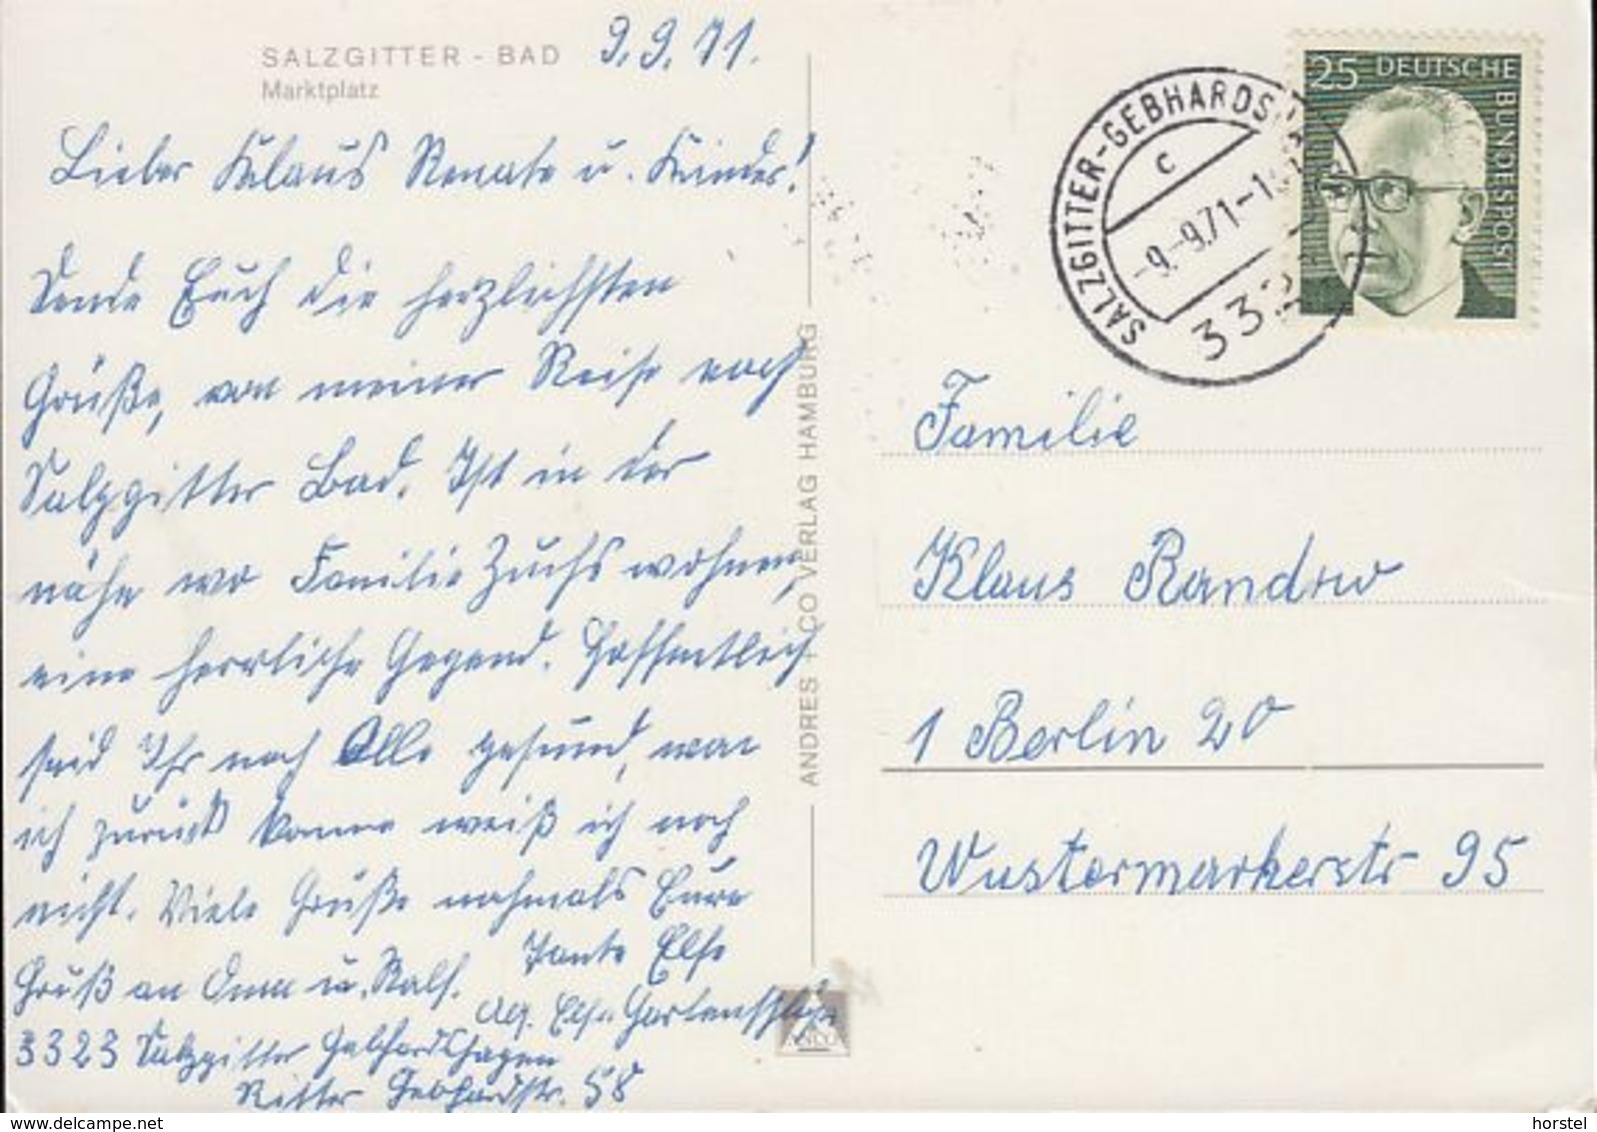 SALZGITTER - BAD
Marktplatz
9.9.71.
Lieber Klaus Renate u. Kinder!
Sende Euch die herzlichsten
Grüße, von meiner Reise nach
Salzgitter Bad. Ist in der
nähe wo Familie Zuchs wohnen,
eine herrliche Gegend. Hoffentlich
seid Ihr noch Alle gesund, wan
ich zurück komme weiß ich noch
nicht. Viele Grüße nochmals Eure
Tante Else
Gruß an Oma u. Ralf.
Abs. Else
3323 Salzgitter Gebhardshagen
Ritter Gebhardstr. 58
ANDRES + CO VERLAG HAMBURG
ANCO
SALZGITTER-GEBHARDS
c
-9.-9.71-1
332
25 DEUTSCHE
BUNDESPOST
Familie
Klaus Randow
1 Berlin 20
Wustermarkerstr 95
www.delcampe.net
horstel